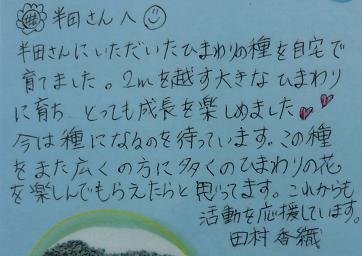 半田さんへ
半田さんにいただいたひまわりの種を自宅で
育てました。2mを越す大きなひまわり
に育ち、とっても成長を楽しめました
今は種になるのを待っています。この種
をまた広くの方に多くのひまわりの花
を楽しんでもらえたらと思ってます。これからも
活動を応援しています。
田村香織